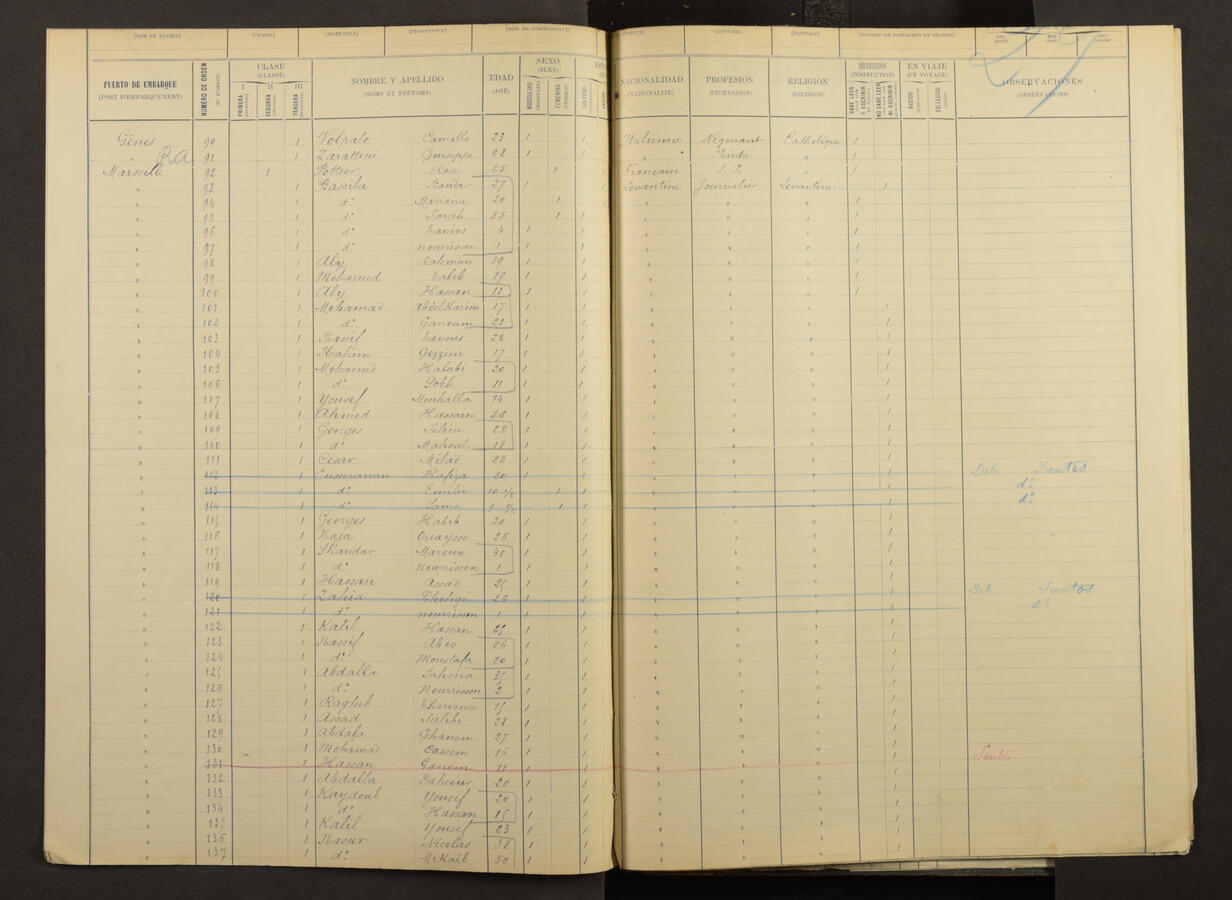 (NOM DU NAVIRE) (CLASSE) (MATRICULE) (PROVENANCE) (NOM DU COMMANDANT) (TONNAGE) (ÉQUIPAGE) (NOMBRE DE PASSAGERS EN TRANSIT)
PUERTO DE EMBARQUE (PORT D'EMBARQUEMENT) NÚMERO DE ORDEN CLASE (CLASSE) I PRIMERA II SEGUNDA III TERCERA NOMBRE Y APELLIDO (NOMS ET PRÉNOMS) EDAD (AGE) SEXO (SEXE) MASCULINO FEMENINO SOLTERO NACIONALIDAD (NATIONALITÉ) PROFESION (PROFESSION) RELIGION (RELIGION) INSTRUCCIÓN (INSTRUCTION) SABE LEER Y ESCRIBIR NO SABE LEER NI ESCRIBIR EN VIAJE (EN VOYAGE) NACIDO FALLECIDO OBSERVACIONES (OBSERVATIONS)
Gênes 90 1 Volpato Camillo 23 1 Italienne Négociant Catholique 1
" 91 1 Zarattini Guiseppe 28 1 " " 1
RA
Marseille 92 1 Pottier Rose 25 1 Française S.P. " 1
" 93 1 Bassila Kandar 27 1 Levantine Journalier Levantine 1
" 94 1 d° Mariana 20 1 " " " 1
" 95 1 d° Sarah 55 1 1 " " " 1
" 96 1 d° 4 1 1 " " " 1
" 97 1 d° nourrisson 1 1 1 " " " 1
" 98 1 Aly Rahman 19 1 1 " " " 1
" 99 1 Mohamed 17 1 1 " " " 1
" 100 1 Aly Hassan 11 1 1 " " " 1
" 101 1 Mohamad Abdel Karim 17 1 1 " " " 1
" 102 1 d° Ganoum 21 1 1 " " " 1
" 103 1 Nassif 22 1 1 " " " 1
" 104 1 Ibrahim Gezzini 17 1 1 " " " 1
" 105 1 Mohamed Halabi 30 1 1 " " " 1
" 106 1 d° Sobh 11 1 1 " " " 1
" 107 1 Yousef Mouhalla 14 1 1 " " " 1
" 108 1 Ahmed Hassain 26 1 1 " " " 1
" 109 1 Georges Selim 28 1 1 " " " 1
" 110 1 d° Mahoul 18 1 1 " " " 1
" 111 1 Cesar Milad 22 1 1 " " " 1
" 112 1 Hafiza 20 1 1 " " " 1 Deb Santos
" 113 1 d° Emilie 10 1/2 1 1 " " " 1 d°
" 114 1 d° Lama 1 1 " " " 1 d°
" 115 1 Georges Habib 20 1 1 " " " 1
" 116 1 Naja Ouaysse 25 1 1 " " " 1
" 117 1 Skandar Maroun 40 1 1 " " " 1
" 118 1 d° Nourrisson 1 1 1 " " " 1
" 119 1 Hassan Assad 25 1 1 " " " 1
" 120 1 Zahia 26 1 1 " " " 1 Deb Santos
" 121 1 d° nourrisson 1 1 1 " " " 1 d°
" 122 1 Kalil Hassan 25 1 1 " " " 1
" 123 1 Nassif Abdo 26 1 1 " " " 1
" 124 1 d° Moustafa 30 1 1 " " " 1
" 125 1 Abdalla Sahma 35 1 1 " " " 1
" 126 1 d° Nourrisson 2 1 1 " " " 1
" 127 1 Ragheb 15 1 1 " " " 1
" 128 1 Assad Salibi 28 1 1 " " " 1
" 129 1 Abdala Ghanem 27 1 1 " " " 1
" 130 1 Mohamad Cassem 16 1 1 " " " 1
" 131 1 Hassan Ganem 11 1 1 " " " 1 Santos
" 132 1 Abdalla Dahrour 20 1 1 " " " 1
" 133 1 Kaydoub Yousef 20 1 1 " " " 1
" 134 1 d° Hassan 15 1 1 " " " 1
" 135 1 Kalil Yousef 23 1 1 " " " 1
" 136 1 Nasser Nicolas 38 1 1 " " " 1
" 137 1 d° McKaël 50 1 1 " " " 1